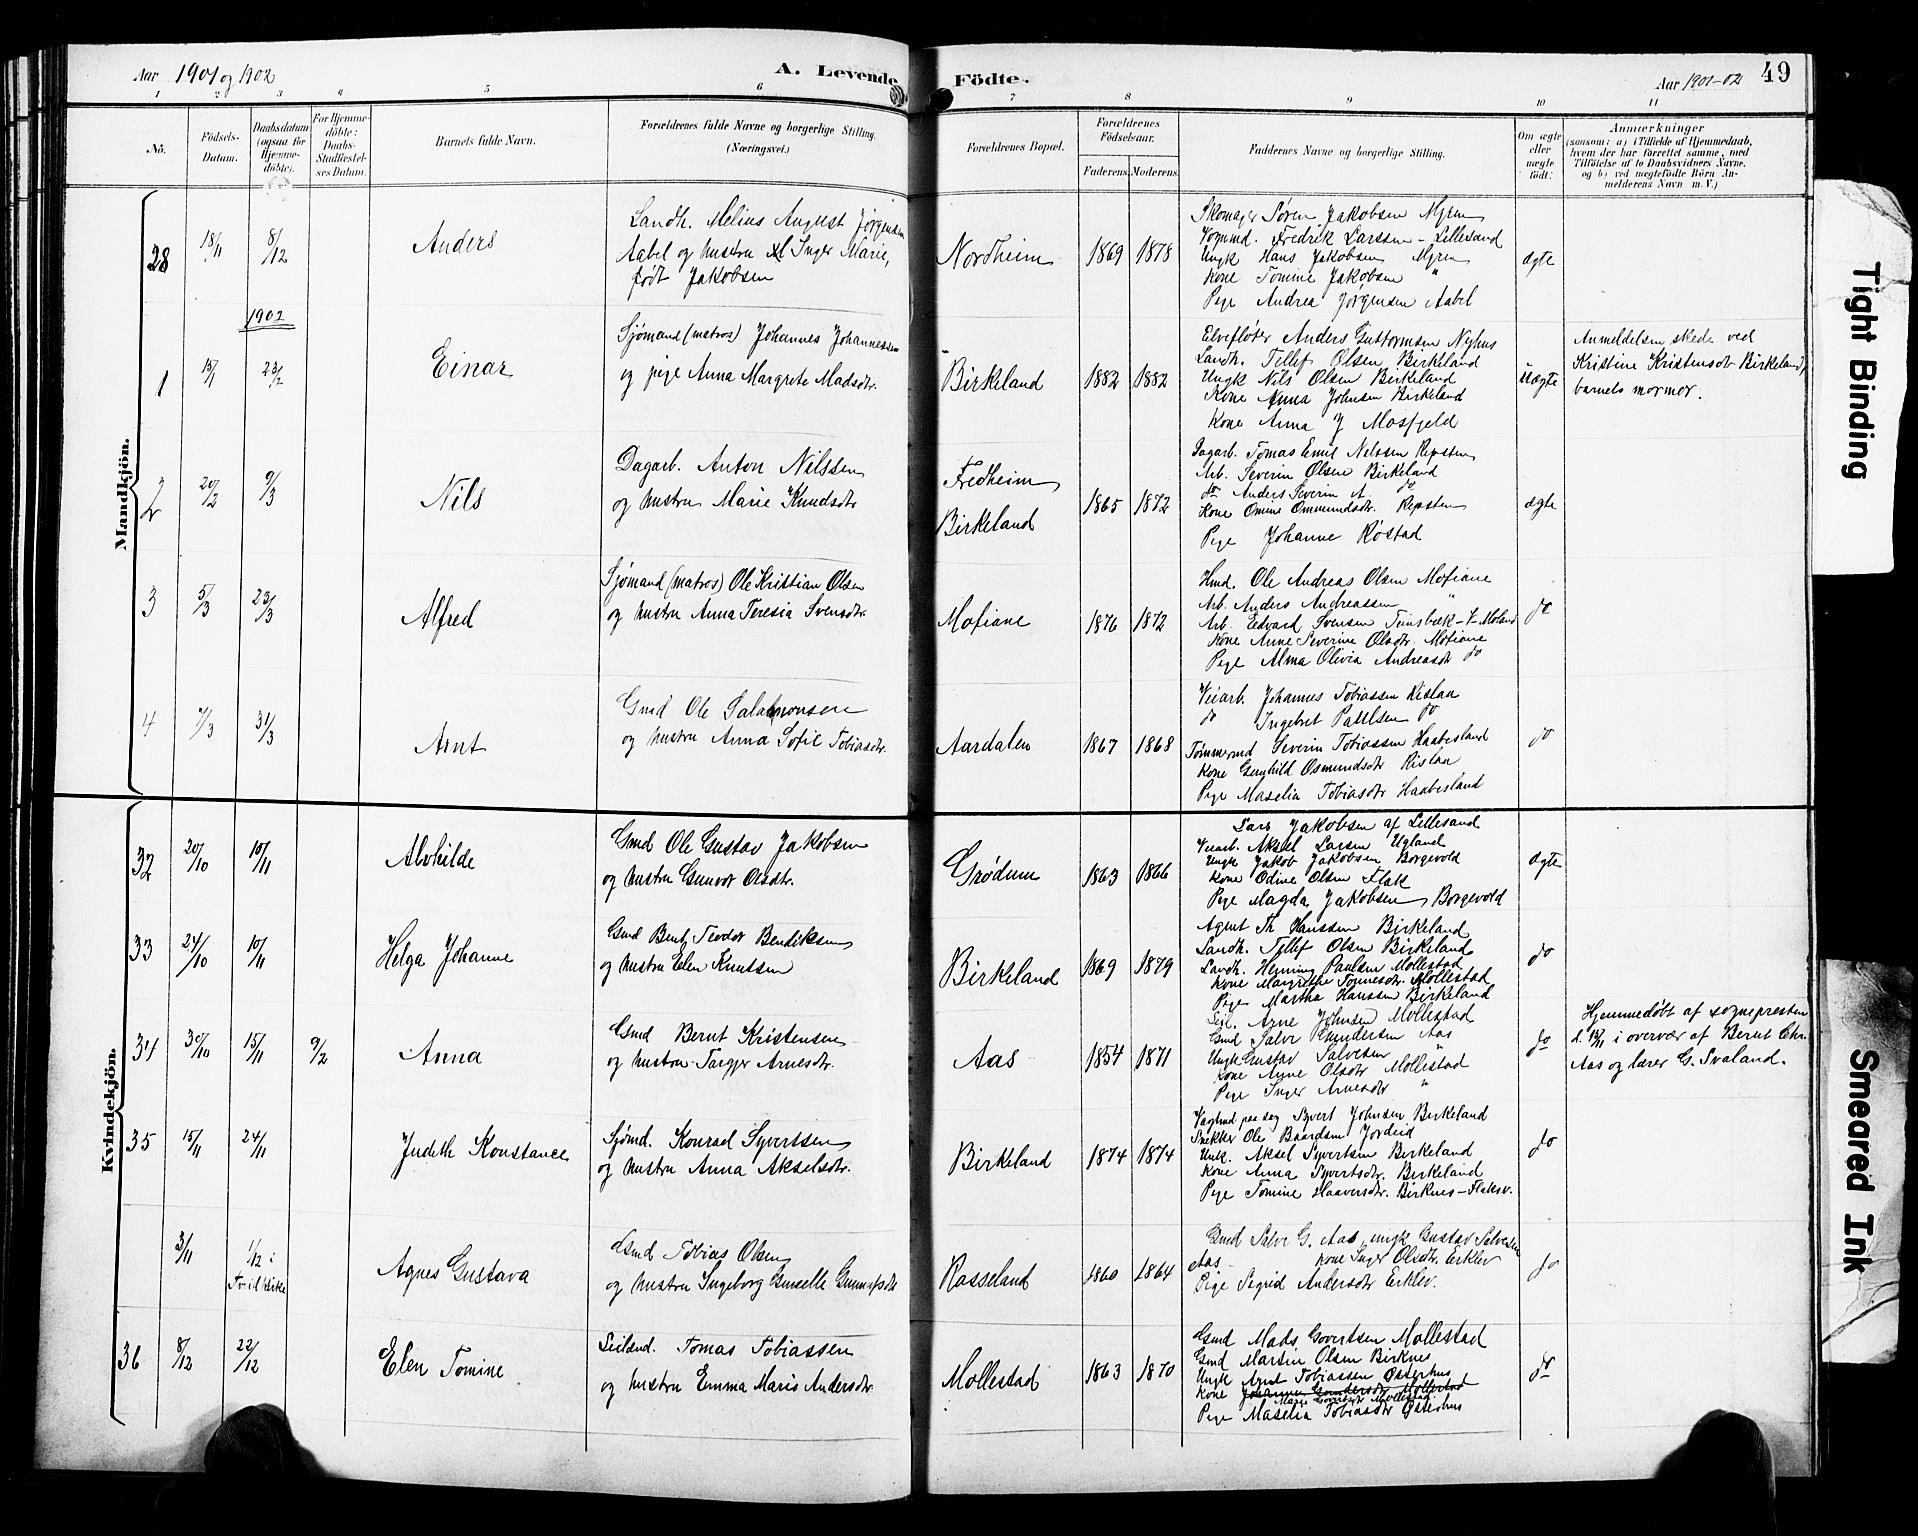 Aar 1901 og 1902
A. Levende Födte.
Aar 1901-02
49
1 2 3 4 5 6 7 8 9 10 11
No.
Födsels-Datum.
Daabsdatum (ogsaa for Hjemmedöbte).
For Hjemmedöbte: Daabs-Stadfæstelses Datum.
Barnets fulde Navn.
Forældrenes fulde Navne og borgerlige Stilling. (Næringsvei.)
Forældrenes Bopæl.
Forældrenes Födselsaar.
Faderens. Moderens.
Faddernes Navne og borgerlige Stilling.
Om ægte eller uægte födt.
Anmærkninger
(saasom: a) i Tilfælde af Hjemmedaab, hvem der har forrettet samme, med Tilföielse af to Daabsvidners Navne, og b) ved uægtefödte Börn Anmelderens Navn m. V.)
Mandkjön.
28 18/11 8/12 Anders
Landh. Melius August Jørgensen
Aabel og hustru Inger Marie,
født Jakobsen
Nordheim 1869 1878
Skomager Søren Jakobsen Myren
Formd. Fredrik Larssen - Lillesand
Ungk Hans Jakobsen Myren
Kone Tomine Jakobsen "
Pige Andrea Jørgensen Aabel
ægte
1902
1 15/1 23/2 Einar
Sjømand (matros) Johannes Johannessen
og pige Anna Margrete Madsdtr.
Birkeland 1882 1882
Elvefløter Anders Guttormsen Nyhus
Landh. Tellef Olsen Birkeland
Ungk Nils Olsen Birkeland
Kone Anna Johnsen Birkeland
Kone Anna J Mosfjeld
Uægte
Anmeldelsen skede ved
Kristine Kristensdt Birkeland,
barnets mormor.
2 20/2 9/3 Nils
Dagarb. Anton Nilssen
og hustru Marie Knudsdtr
Fredheim
Birkeland
1865 1872
Dagarb. Tomas Emil Nelssen Repsten
Arb. Severin Olsen Birkeland
do Anders Severin A. do
Kone Omine Ommundsdtr. Repsten
Pige Johanne Røstad
ægte
3 5/3 23/3 Alfred
Sjømand (matros) Ole Kristian Olsen
og hustru Anna Teresia Svensdtr.
Mofiane 1876 1872
Hmd. Ole Andreas Olsen Mofiane
Arb. Anders Andreassen "
Arb. Edvard Svensen Tinsbæk - V-Moland
Kone Anne Severine Olsdtr. Mofiane
Pige Alma Olivia Andreasdt do
do
4 7/3 31/3 Arnt
Gmd Ole Salamonsen
og hustru Anna Sofie Tobiasdtr.
Aardalen 1867 1868
Veiarb. Johannes Tobiassen Rislaa
do Ingebret Paulsen do
Tømmermd Severin Tobiassen Haabesland
Kone Gunhild Osmundsdtr Rislaa
Pige Maselia Tobiasdtr Haabesland
do
Kvindekjön.
32 20/10 10/11 Alvhilde
Gmd Ole Gustav Jakobsen
og hustru Gunvor Olsdtr.
Grødum 1863 1866
Lars Jakobsen af Lillesand
Veiarb. Aksel Larsen Ugland
Ungk Jakob Jakobsen Borgevold
Kone Odine Olsen Flak
Pige Magda Jakobsen Borgevold
ægte
33 24/10 10/11 Helga Johanne
Gmd Bent Teodor Bendiksen
og hustru Elen Knutsen
Birkeland 1869 1879
Agent Th Hanssen Birkeland
Landh. Tellef Olsen Birkeland
Landh. Henning Paulsen Mollestad
Kone Margrethe Tønnesdtr. Mollestad
Pige Martha Hanssen Birkeland
do
34 30/10 15/11 9/2 Anna
Gmd Bernt Kristensen
og hustru Targjer Arnesdtr.
Aas 1854 1871
Seil. Arne Johnsen Mollestad
Gmd Salve Gundersen Aas
Ungk Gustav Salvesen "
Kone Anne Olsdtr Mollestad
Pige Inger Arnesdtr "
do
Hjemmedøbt af sognepresten
d. 15/11 i overvær af Bernt Chr.
Aas og lærer G. Svaland.
35 15/11 24/11 Judith Konstance
Sjømd. Konrad Syvertsen
og hustru Anna Akselsdtr.
Birkeland 1874 1874
paa sag Syvert Johnsen Birkeland
Snekker Ole Baardsen Jordeid
Unk. Aksel Syvertsen Birkeland
Kone Anna Syvertsdtr. Birkeland
Pige Tomine Haaversdtr. Birknes - Flaksv.
do
3/11 1/12 i Trefd. kirke Agnes Gustava
Gmd Tobias Olsen
og hustru Ingeborg Gunelle
Rosseland 1860 1864
Gmd Salve G. Aas, ungk Gustav Salvesen
Aas - Kone Inger Olsdtr. Erklev
Pige Sigrid Andersdtr Erklev.
do
36 8/12 22/12 Elen Tomine
Seilsmd. Tomas Tobiassen
og hustru Emma Marie Andersdtr
Mollestad 1863 1870
Gmd Mads Govertsen Mollestad
Gmd Martin Olsen Birknes
Ungk Arnt Tobiassen Østerhus
Kone Johanne Gundersdtr Mollestad
Marie Govertsdtr Mollestad
Pige Maselia Tobiasdtr Østerhus
do
Tight Binding
Smeared Ink